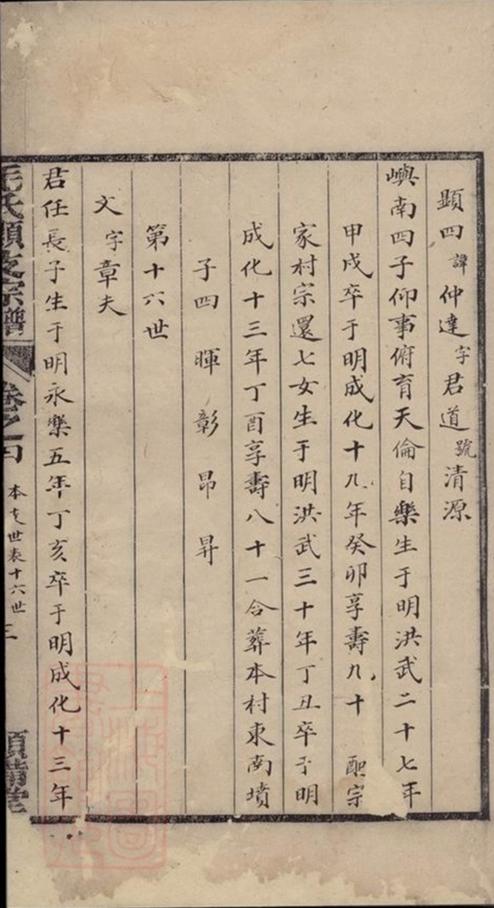 顯四諱仲達字君道號清源
嶼南四子仰事俯育天倫自樂生于明洪武二十七年
甲戌卒于明成化十九年癸卯享壽九十 配宗
家村宗還七女生于明洪武三十年丁丑卒于明
成化十三年丁酉享壽八十一合葬本村東南墳
子四 暉 彰 昂 昇
第十六世
文字章夫
君任長子生于明永樂五年丁亥卒于明成化十三年
毛氏顯支宗譜 卷之四 本支世表十六世 三